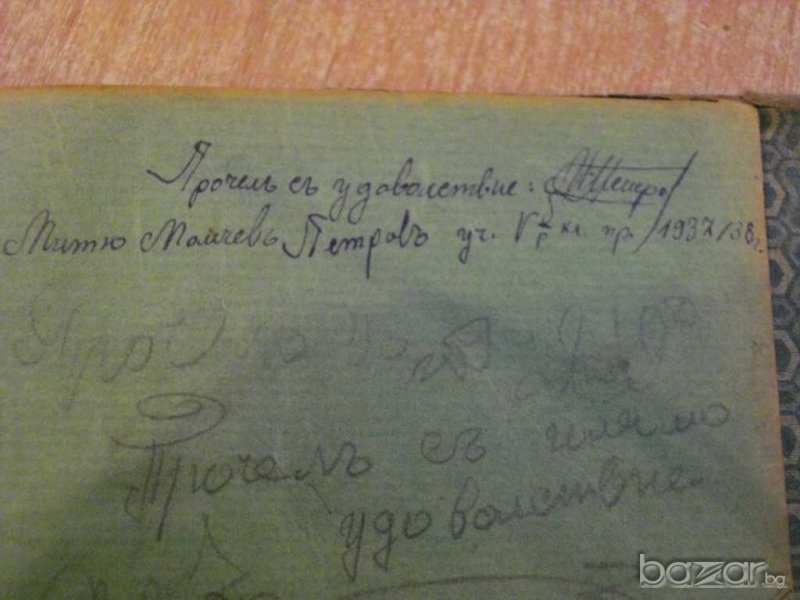 Прочелъ съ удоволствие: М.Петро
Митю Мойчевъ Петровъ уч. V кл. пр. /1937/38г.
Прочелъ съ голямо
удоволствие
bazar.bg